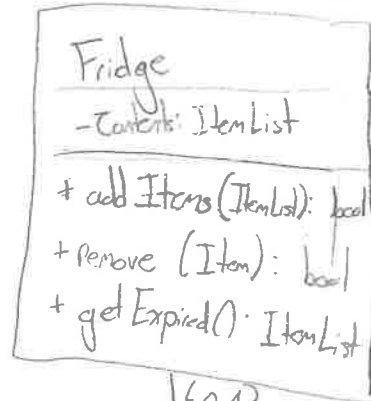 Fridge
- Contents: ItemList
+ addItems(ItemList): bool
+ remove (Item): bool
+ getExpired(): ItemList